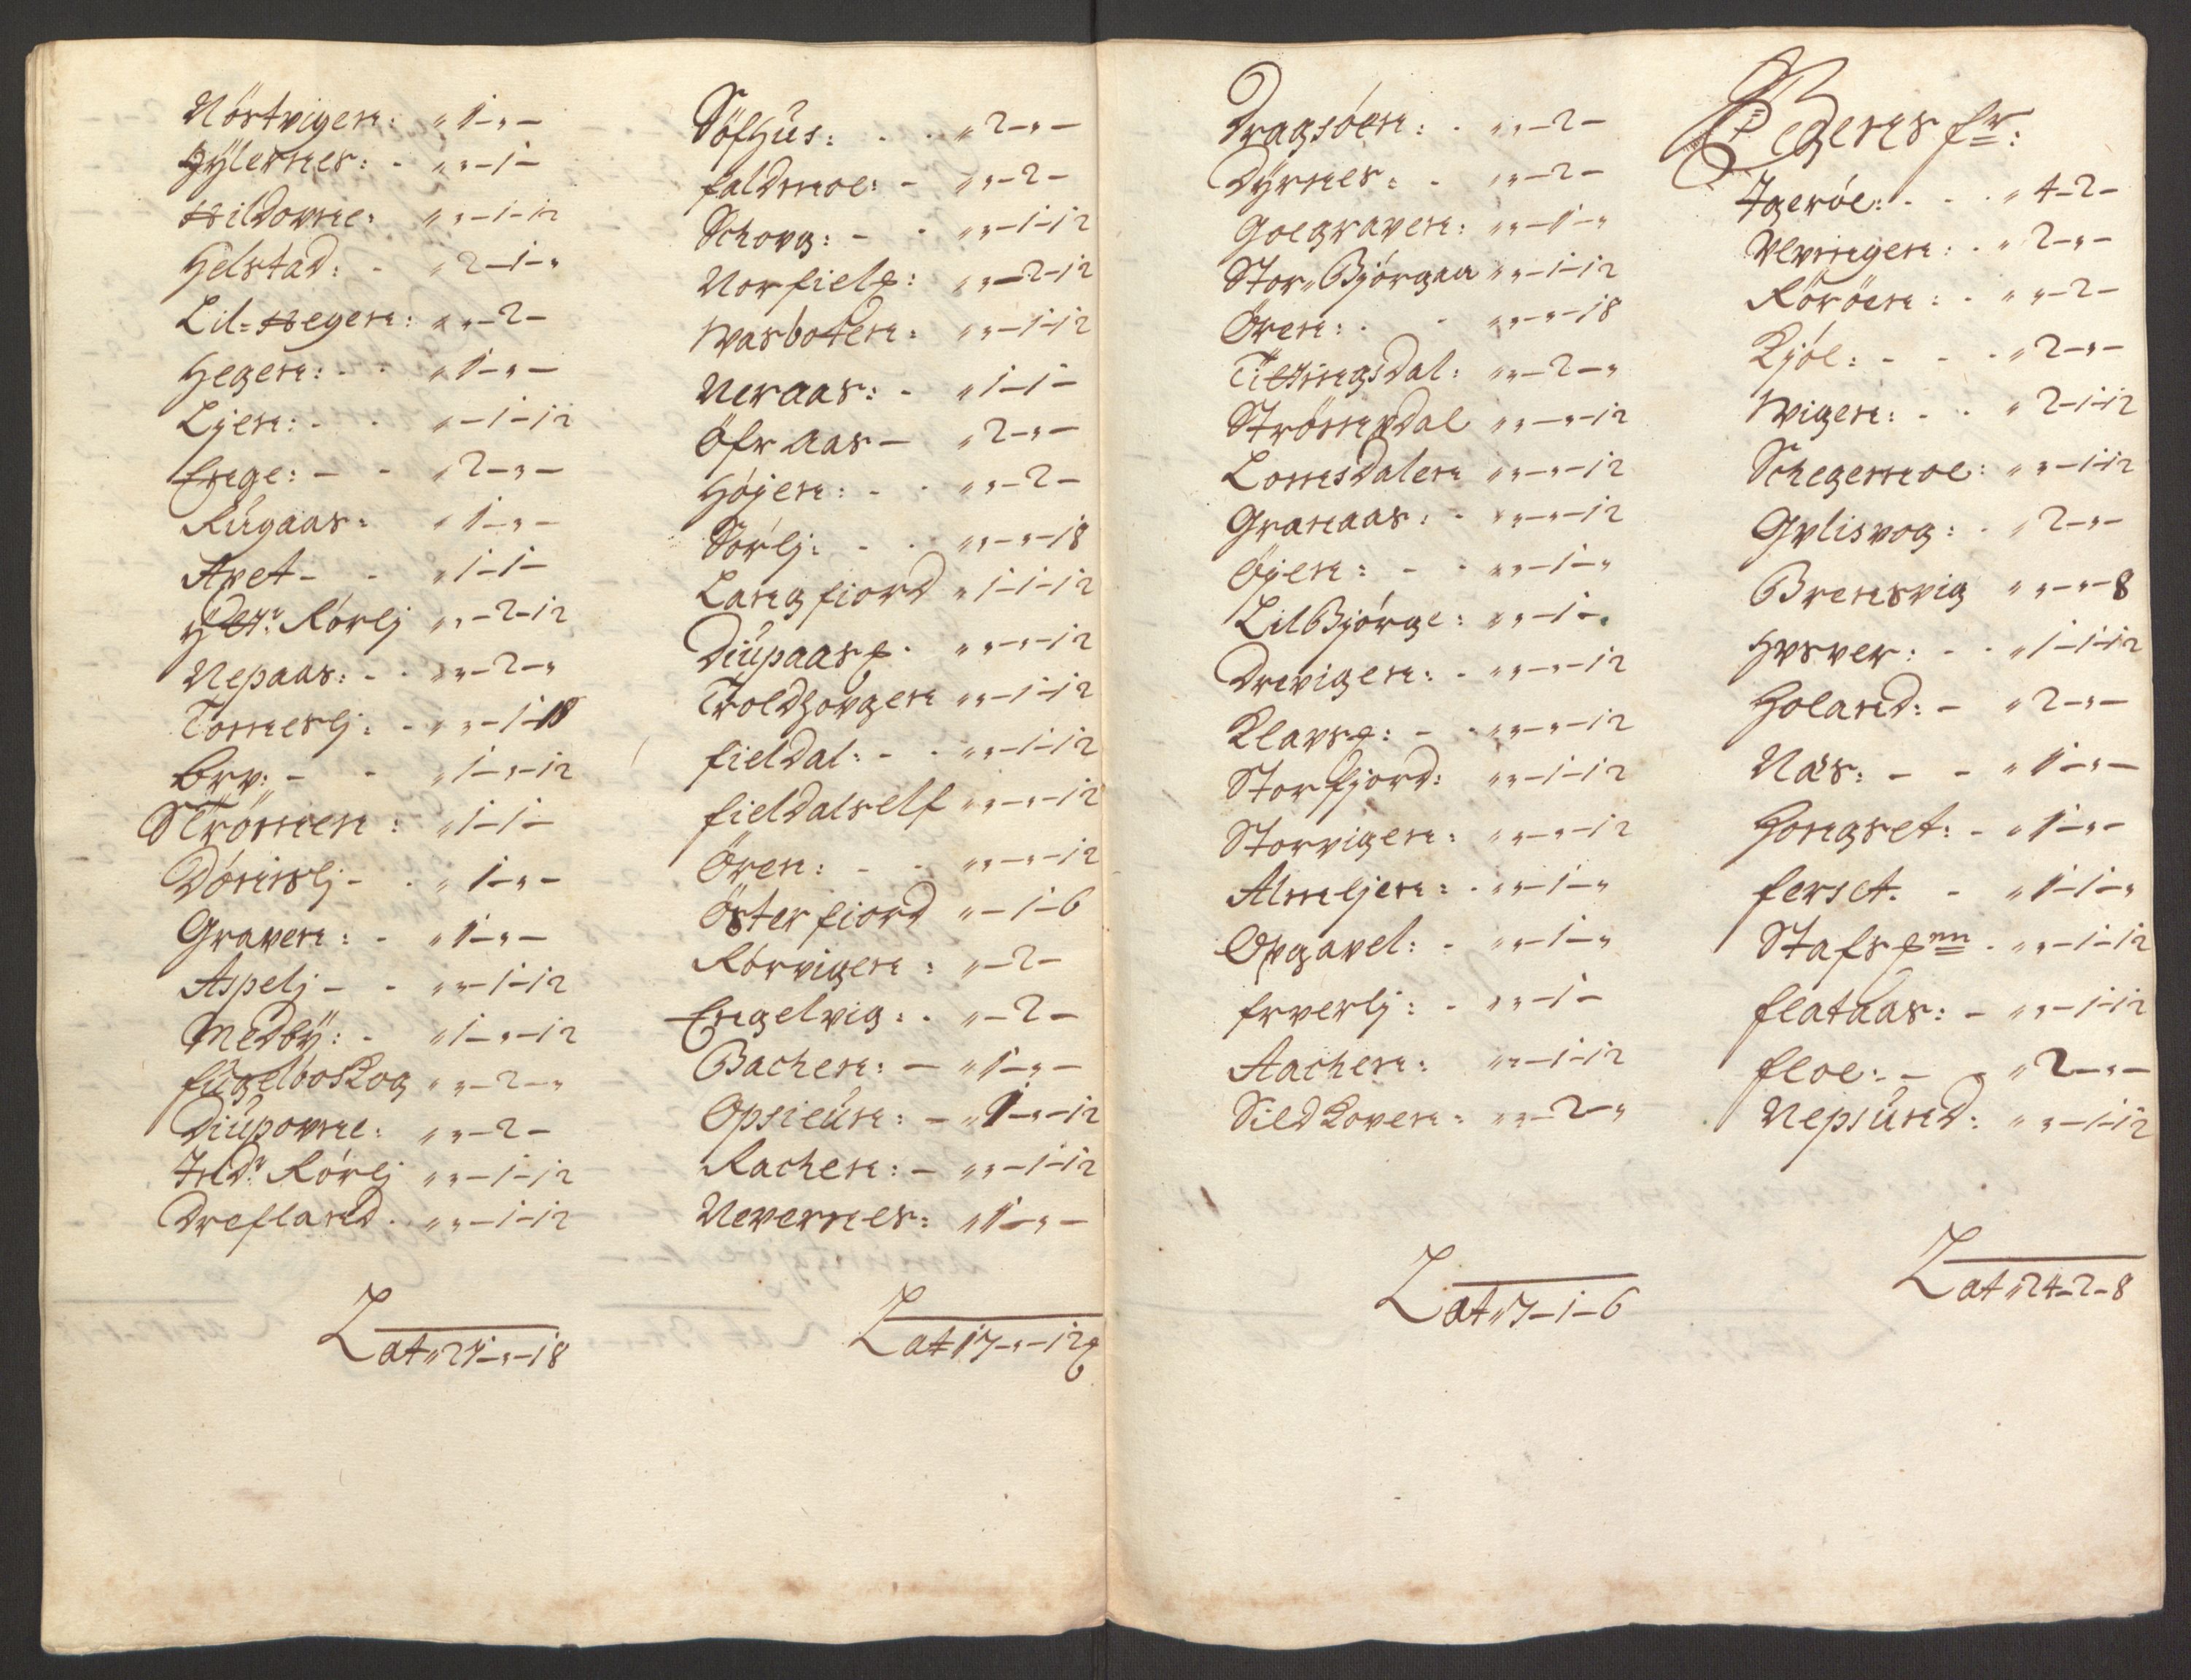 Nöstvigen: „ 1 - „ -
Hylernes: - „ „ - 1 -
Hildovne: „ „ - 1 - 12
Helstad: - „ 2 - 1 - „
Lil=Hegen: „ „ - 2 -
Hegen: - - „ 1 - „ -
Ljen: - - „ - 1 - 12
Enge: - - „ 2 - „ -
Rugaas: „ 1 - „ -
Avet - - „ 1 - 1 -
Ytr: Rórlj „ „ - 2 - 12
Nepaas: - - „ „ - 2 - „
Tomeslj: - „ „ - 1 - 18
Örv: - - „ 1 - „ - 12
Strömen: „ 1 - 1 -
Dóninslj - - „ 1 - „ -
Graven: - „ 1 - „ -
Aspelj - - „ „ - 1 - 12
Medbÿ: - „ 1 - „ - 12
fugelbosKog „ „ - 2 - „
Diupovne: „ „ - 2 -
Indr: Rórlj „ „ - 1 - 12
Drefland - „ „ - 1 - 12
Lat „ 21 - „ - 18
Söfhus: - - „ 2 - „ -
faldmoe: - „ „ - 2 -
Schovg: - - „ „ - 1 - 12
Norfielf: „ „ - 2 - 12
Wasboten: „ „ - 1 - 12
Neraas: - „ 1 - 1 -
Öfr Aas - „ 2 - „ -
Höjen: - - „ „ - 2 -
Sörlj: - - „ „ - „ - 18
Langfiord „ 1 - 1 - 12
Diupaasf. „ „ - „ - 12
Troldhovgen „ „ - 1 - 12
fieldal: - - „ „ - 1 - 12
fieldalself „ „ - „ - 12
Ören: - - „ „ - „ - 12
Österfiord „ - 1 - 6
Rórvigen: „ - 2 -
Engelvig: - „ - 2 -
Bachen: - „ 1 - „ -
Opsieun: - „ 1 - „ - 12
Rachen: - „ „ - 1 - 12
Nevernes: „ 1 - „ -
Lat 17 - „ - 12
Dragsóen: - „ „ - 2 -
Dÿrnes: - „ „ - 2 -
Goegraven: „ „ - 1 - „
Stor„Bjórgaa „ „ - 1 - 12
Ören: - - „ „ - „ - 18
Titingsdal: „ „ - 2 - „
Strömdal „ „ - „ - 12
Lomsdalen „ „ - „ - 12
Granaas: - „ „ - „ - 12
Öjen: - - „ „ - 1 - „
LilBjórge: „ „ - 1 - „
Drevigen: - „ „ - „ - 12
Klavsf: - - „ „ - „ - 12
Storfjord: „ „ - 1 - 12
Storvigen: „ „ - „ - 12
Almljen: - „ „ - 1 - „
Opgavel: - „ „ - 1 - „
frverlj: - „ „ - 1 -
Aachen: „ „ - 1 - 12
SildHoven: „ „ - 2 - „
Lat „ 7 - 1 - 6
Begens fr:
Igeróe: - - - „ 4 - 2 -
Vlvingen: - „ 2 - „ -
Röröen: - „ „ - 2 -
Kjóe: - - - „ 2 - „ -
Wigen: - - „ 2 - 1 - 12
Schegemoe: „ „ - 1 - 12
Gvlisvog: - „ 2 - „ -
Bremsvig „ „ - „ - 8
Hvsver: - - „ 1 - 1 - 12
Holand: - „ 2 - „ -
Næs: - - „ 1 - „ -
Hongset: - „ 1 - „ -
ferset. - „ 1 - 1 - „
Stafsfnn - „ „ - 1 - 12
flataas: - „ „ - 1 - 12
floe: - - „ 2 - „ -
Nepsund: „ „ - 1 - 12
Lat „ 24 - 2 - 8